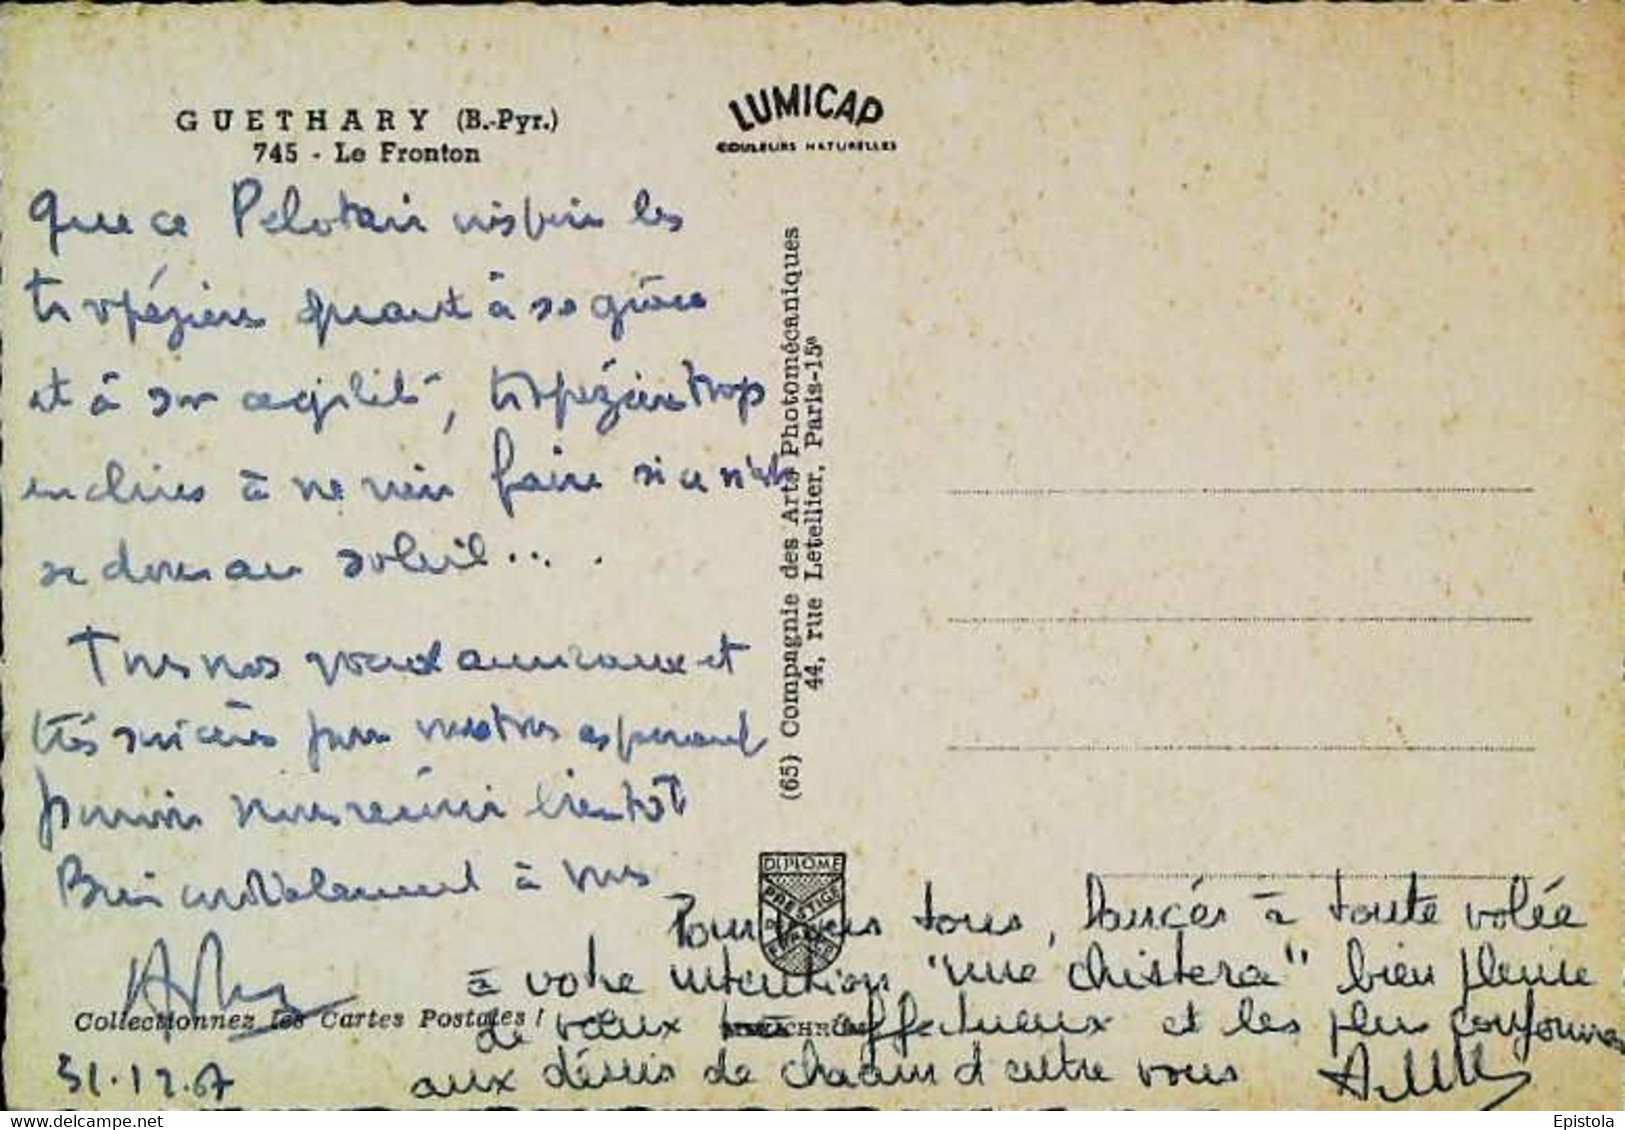 GUETHARY (B.-Pyr.)
745 - Le Fronton
LUMICAP
COULEURS NATURELLES
Que ce Pelotari inspire les
tropéziens quant à sa grâce
et à son agilité, tropéziens trop
enclins à ne rien faire si ce n'est
se dorer au soleil....
Tous nos voeux amicaux et
très sincères pour vous tous espérant
pouvoir nous réunir bientôt
Bien cordialement à vous
31.12.67
(65) Compagnie des Arts Photomécaniques
44, rue Letellier, Paris-15e
DIPLOME
PRESTIGE
DE
FRANCE
Collectionnez les Cartes Postales !
Pour vous tous, lancés à toute volée
à votre intention "une chistera" bien pleine
de voeux très affectueux et les plus conformes
aux désirs de chacun d'entre vous
Epistola